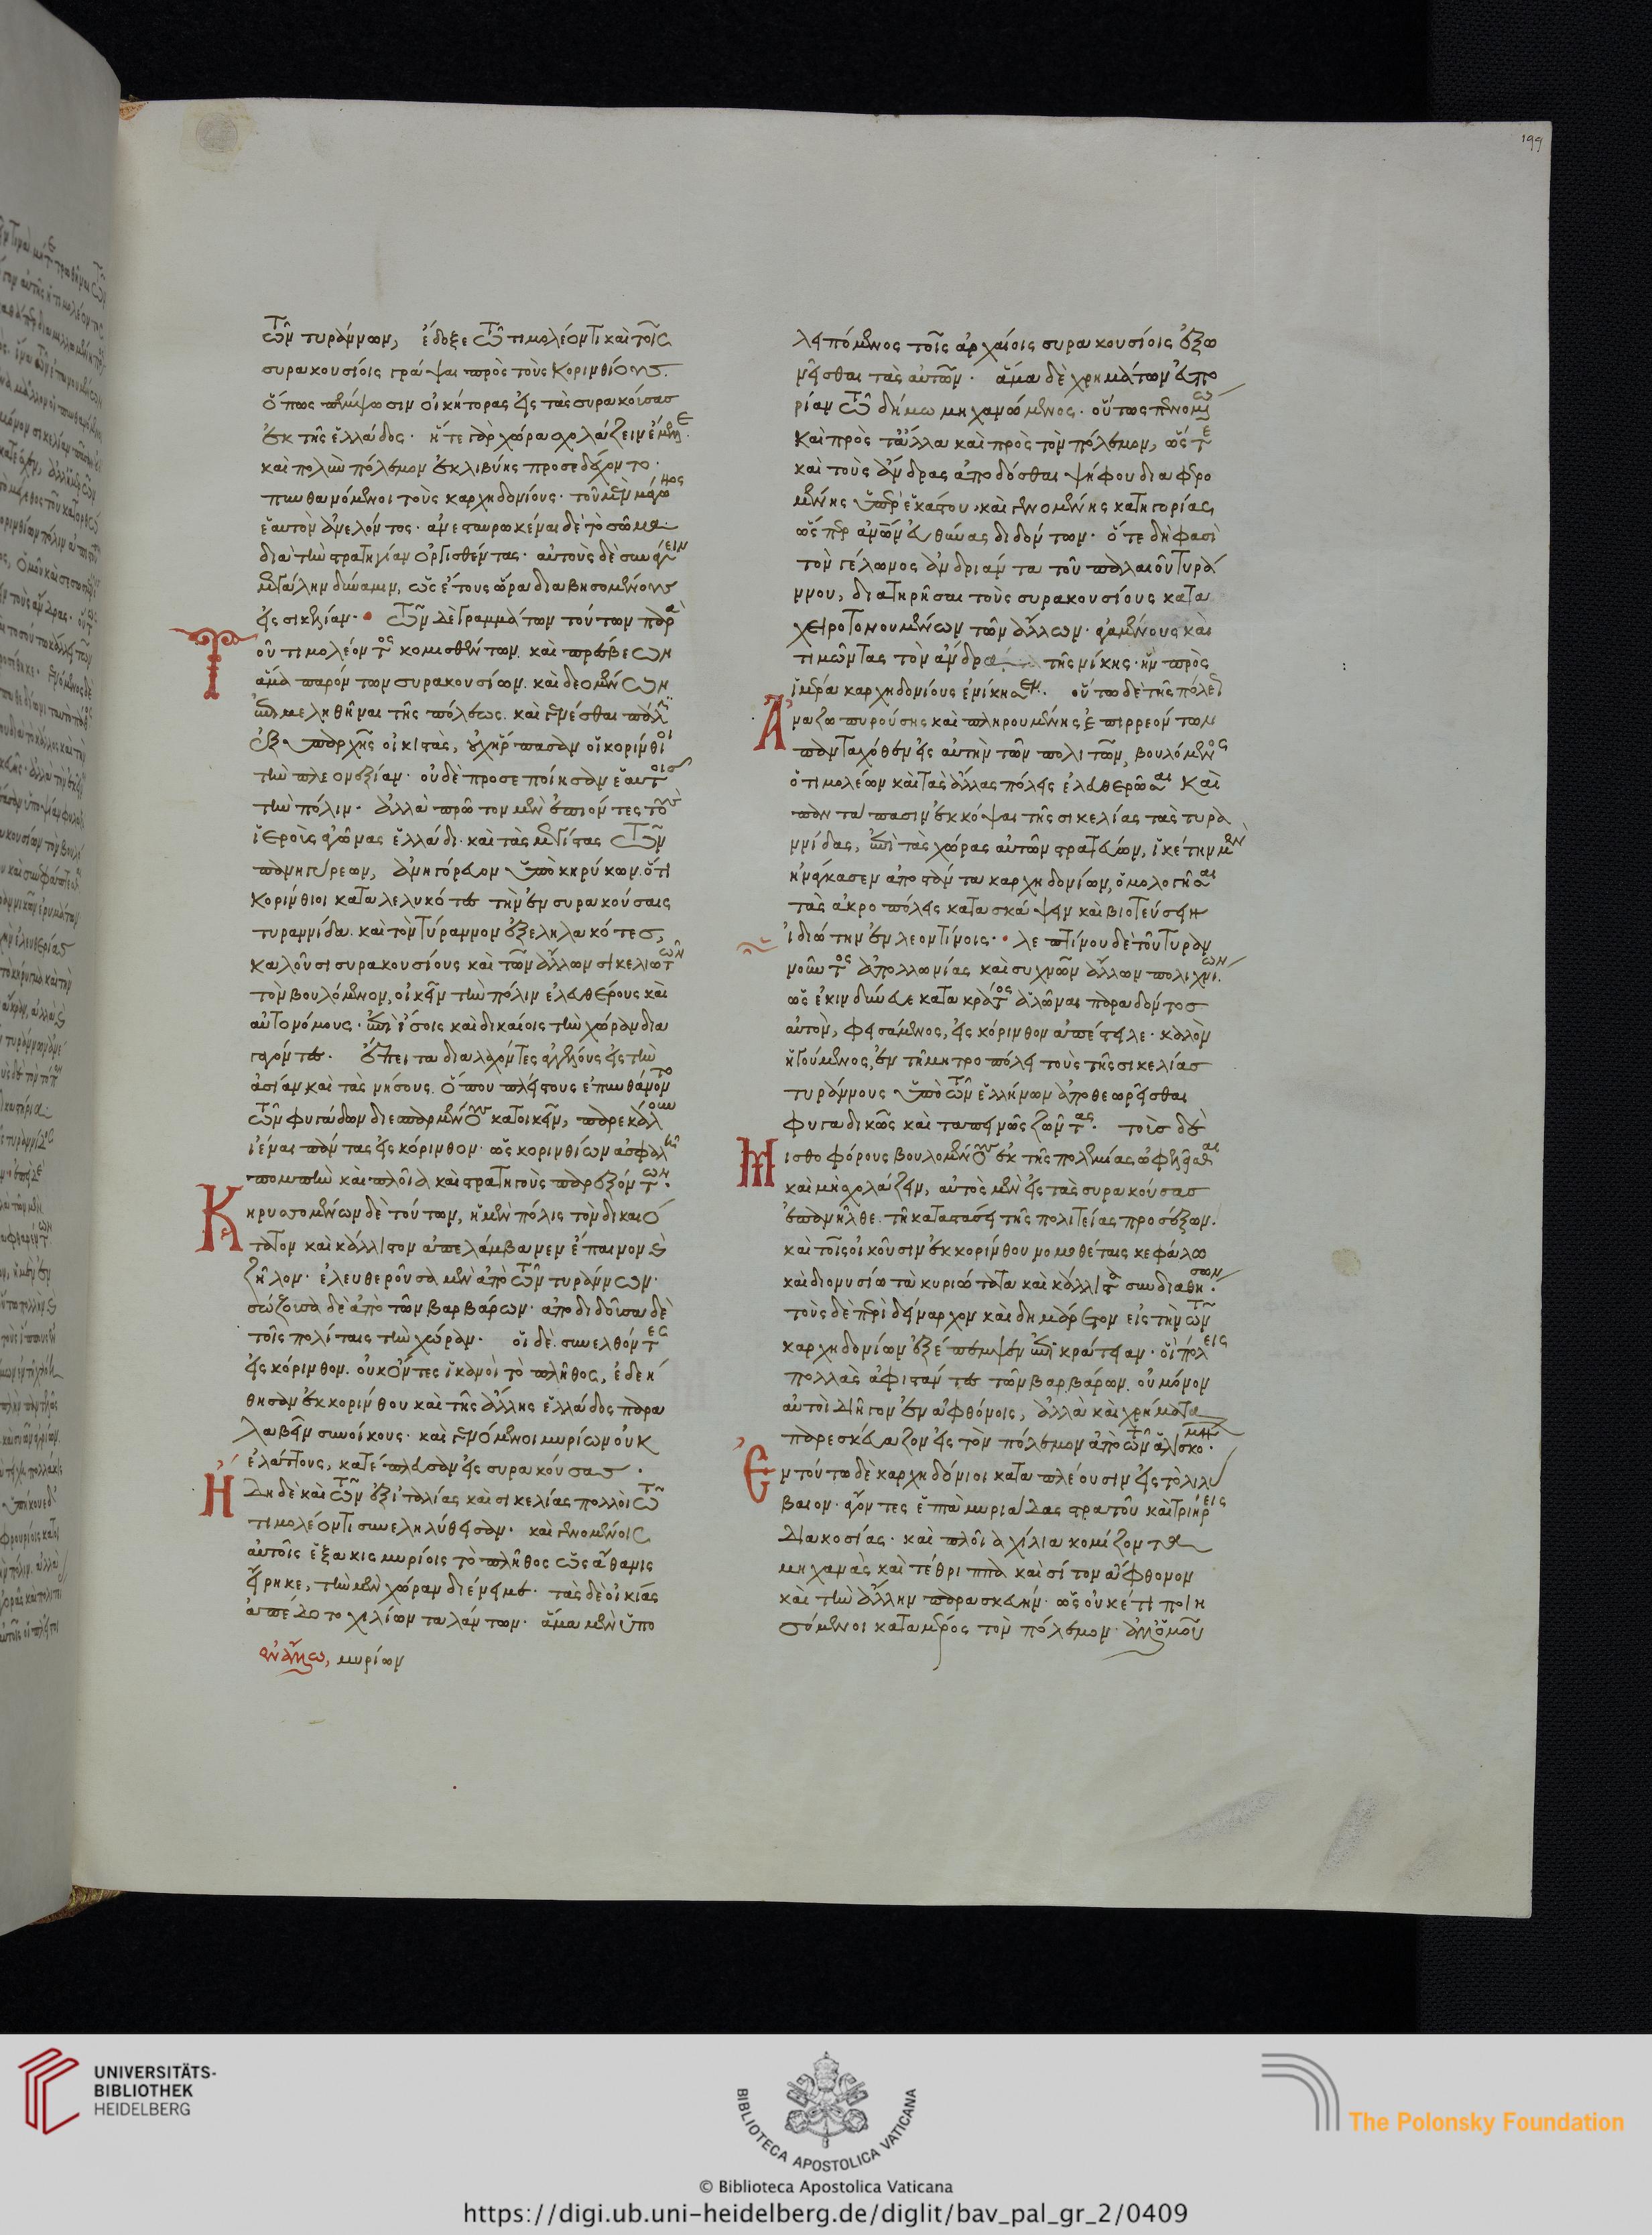 τῶν τυράννων, ἔδοξε τῶ τιμολέοντι καὶ τοῖς
συρακουσίοις γράψαι πρὸς τοὺς Κορινθίους.
ὅπως πέμψωσιν οἰκήτορας εἰς τὰς συρακούσας
ἐκ τῆς ἑλλάδος. ἥ τε γὰρ χώρα σχολάζειν ἔμελλε.
καὶ πολὺν πόλεμον ἐκ λιβύης προσεδέχοντο.
πυνθανόμενοι τοὺς καρχηδονίους. τοῦ μὲν μάγωνος
ἑαυτὸν ἀνελόντος. ἀνεσταυρωκέναι δὲ τὸ σῶμα
διὰ τὴν στρατηγίαν ὀργισθέντας. αὐτοὺς δὲ συνάγειν
μεγάλην δύναμιν, ὡς ἔτους ὥρα διαβησομένους
εἰς σικελίαν. τῶν δὲ γραμμάτων τούτων παρὰ
Τοῦ τιμολέοντος κομισθέντων. καὶ πρέσβεων
ἅμα παρόντων συρακουσίων. καὶ δεομένων
ἐπιμεληθῆναι τῆς πόλεως. καὶ γενέσθαι πάλιν
ἐξ ὑπαρχῆς οἰκιστὰς, οὐχ ἥρπασαν οἱ κορίνθιοι
τὴν πλεονεξίαν. οὐδὲ προσεποίησαν ἑαυτοῖς
τὴν πόλιν. ἀλλὰ πρῶτον μὲν ἐπιόντες τοὺς
ἱεροὺς ἀγῶνας ἑλλάδι. καὶ τὰς μεγίστας τῶν
πανηγύρεων, ἀνηγόρευον ὑπὸ κηρύκων. ὅτι
κορίνθιοι καταλελυκότες τὴν ἐν συρακούσαις
τυραννίδα. καὶ τὸν τύραννον ἐξεληλακότες,
καλοῦσι συρακουσίους καὶ τῶν ἄλλων σικελιωτῶν
τὸν βουλόμενον, οἰκεῖν τὴν πόλιν ἐλευθέρους καὶ
αὐτονόμους. ἐπὶ ἴσοις καὶ δικαίοις τὴν χώραν δια
λαχόντες. ἔπειτα διαλαχόντες ἀγγέλους εἰς τὴν
ἀσίαν καὶ τὰς νήσους. ὅπου πλείστους ἐπυνθάνοντο
τῶν φυγάδων διεσπαρμένους κατοικεῖν, παρεκάλουν
ἰέναι πάντας εἰς κόρινθον. ὡς κορινθίων ἀσφαλῆ
πομπὴν καὶ πλοῖα καὶ στρατηγοὺς παρεξόντων.
Κηρυσσομένων δὲ τούτων, ἡ μὲν πόλις τὸν δικαιό
τατον καὶ κάλλιστον ἀπελάμβανεν ἔπαινον καὶ
ζῆλον. ἐλευθεροῦσα μὲν ἀπὸ τῶν τυράννων.
σώζουσα δὲ ἀπὸ τῶν βαρβάρων. ἀποδιδοῦσα δὲ
τοῖς πολίταις τὴν χώραν. οἱ δὲ συνελθόντες
εἰς κόρινθον. οὐκ ὄντες ἱκανοὶ τὸ πλῆθος, ἐδεή
θησαν ἐκ κορίνθου καὶ τῆς ἄλλης ἑλλάδος παρα
λαβεῖν συνοίκους. καὶ γενόμενοι μυρίων οὐκ
ἐλάττους, κατέπλευσαν εἰς συρακούσας.
Ἤδη δὲ καὶ τῶν ἐξ ἰταλίας καὶ σικελίας πολλοὶ τῶ
τιμολέοντι συνεληλύθεισαν. καὶ γενομένοις
αὐτοῖς ἑξακις μυρίοις τὸ πλῆθος ὡς ἄθανις
εἴρηκε, τὴν μὲν χώραν διένειμε. τὰς δὲ οἰκίας
ἀπέδοτο χιλίων ταλάντων. ἅμα μὲν ὑπο
ἐν ἄλλω, μυρίων
199
λειπόμενος τοῖς ἀρχαίοις συρακουσίοις ἐξω
νεῖσθαι τὰς αὐτῶν. ἅμα δὲ χρημάτων εὐπο
ρίαν τῶ δήμω μηχανώμενος. οὕτως πενομένω
καὶ πρὸς τἄλλα καὶ πρὸς τὸν πόλεμον, ὥστε
καὶ τοὺς ἀνδρας ἀποδόσθαι ψήφου διαφερο
μένης ὑπὲρ ἑκάστου. καὶ γενομένης κατηγορίας,
ὥσπερ ἀνθρώπων εὐθύνας διδόντων. ὅτε δὴ φασὶ
τὸν γέλωνος ἀνδριάντα τοῦ παλαιοῦ τυρά
ννου, διατηρῆσαι τοὺς συρακουσίους κατα
χειροτονουμένων τῶν ἄλλων. ἀγαμένους καὶ
τιμῶντας τὸν ἄνδρα τῆς νίκης. ἣν πρὸς
ἱμέρα καρχηδονίους ἐνίκησεν. οὕτω δὲ τῆς πόλεως
Ἀναζωπυρούσης καὶ πληρουμένης ἐπιρρεόντων
πανταχόθεν εἰς αὐτὴν τῶν πολιτῶν, βουλόμενος
ὁ τιμολέων καὶ τὰς ἄλλας πόλεις ἐλευθερῶσαι καὶ
παντάπασιν ἐκκόψαι τῆς σικελίας τὰς τυρα
ννίδας, ἐπὶ τὰς χώρας αὐτῶν στρατεύων, ἱκέτην μὲν
ἠνάγκασεν ἀποστάντα καρχηδονίων, ὁμολογῆσαι
τὰς ἀκροπόλεις κατασκάψειν καὶ βιοτεύσειν
ἰδιώτην ἐν λεοντίνοις. λεπτίνου δὲ τοῦ τυραν
νοῦντος ἀπολλωνίας καὶ συχνῶν ἄλλων πολιχνίων.
ὡς ἐκινδύνευε κατα κράτος ἁλῶναι παραδόντος
αὑτὸν, φεισάμενος, εἰς κόρινθον ἀπέστειλε. καλὸν
ἡγούμενος, ἐν τῆ μητροπόλει τοὺς τῆς σικελίας
τυράννους ὑπὸ τῶν ἑλλήνων ἀποθεωρεῖσθαι
φυγαδικῶς καὶ ταπεινῶς ζῶντας. τοὺς δὲ
Μισθοφόρους βουλομένους ἐκ τῆς πολεμίας ὠφελεῖσθαι
καὶ μὴ σχολάζειν, αὐτὸς μὲν εἰς τὰς συρακούσας
ἐπανῆλθε. τῆ καταστάσει τῆς πολιτείας προσέξων.
καὶ τοῖς οἰκοῦσιν ἐκ κορίνθου νομοθέταις κεφάλω
καὶ διονυσίω τὰ κυριώτατα καὶ κάλλιστα συνδιαθήσων.
τοὺς δὲ περὶ δείναρχον καὶ δημάρετον εἰς τὴν τῶν
καρχηδονίων ἐξέπεμψεν ἐπικράτειαν. οἳ πόλεις
πολλὰς ἀφιστάντες τῶν βαρβάρων. οὐ μόνον
αὐτοὶ διῆγον ἐν ἀφθόνοις, ἀλλὰ καὶ χρήματα
παρεσκεύαζον εἰς τὸν πόλεμον ἀπὸ τῶν ἁλισκομένων.
Ἐν τούτω δὲ καρχηδόνιοι καταπλέουσιν εἰς τὸ λιλύ
βαιον. ἄγοντες ἑπτὰ μυριάδας στρατοῦ καὶ τριήρεις
διακοσίας. καὶ πλοῖα χίλια κομίζοντα
μηχανὰς καὶ τέθριππα καὶ σῖτον ἄφθονον
καὶ τὴν ἄλλην παρασκευήν. ὡς οὐκέτι ποιη
σόμενοι κατα μέρος τὸν πόλεμον. ἀλλ' ὁμοῦ
UNIVERSITÄTS-
BIBLIOTHEK
HEIDELBERG
BIBLIOTECA APOSTOLICA VATICANA
The Polonsky Foundation
© Biblioteca Apostolica Vaticana
https://digi.ub.uni-heidelberg.de/diglit/bav_pal_gr_2/0409